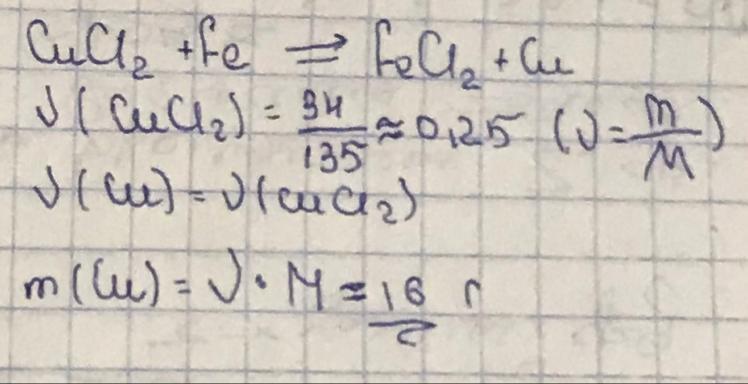 CuCl₂ + Fe ⇒ FeCl₂ + Cu
ν(CuCl₂) = 34/135 ≈ 0,25 (ν = m/M)
ν(Cu) = ν(CuCl₂)
m(Cu) = ν · M = 16 г